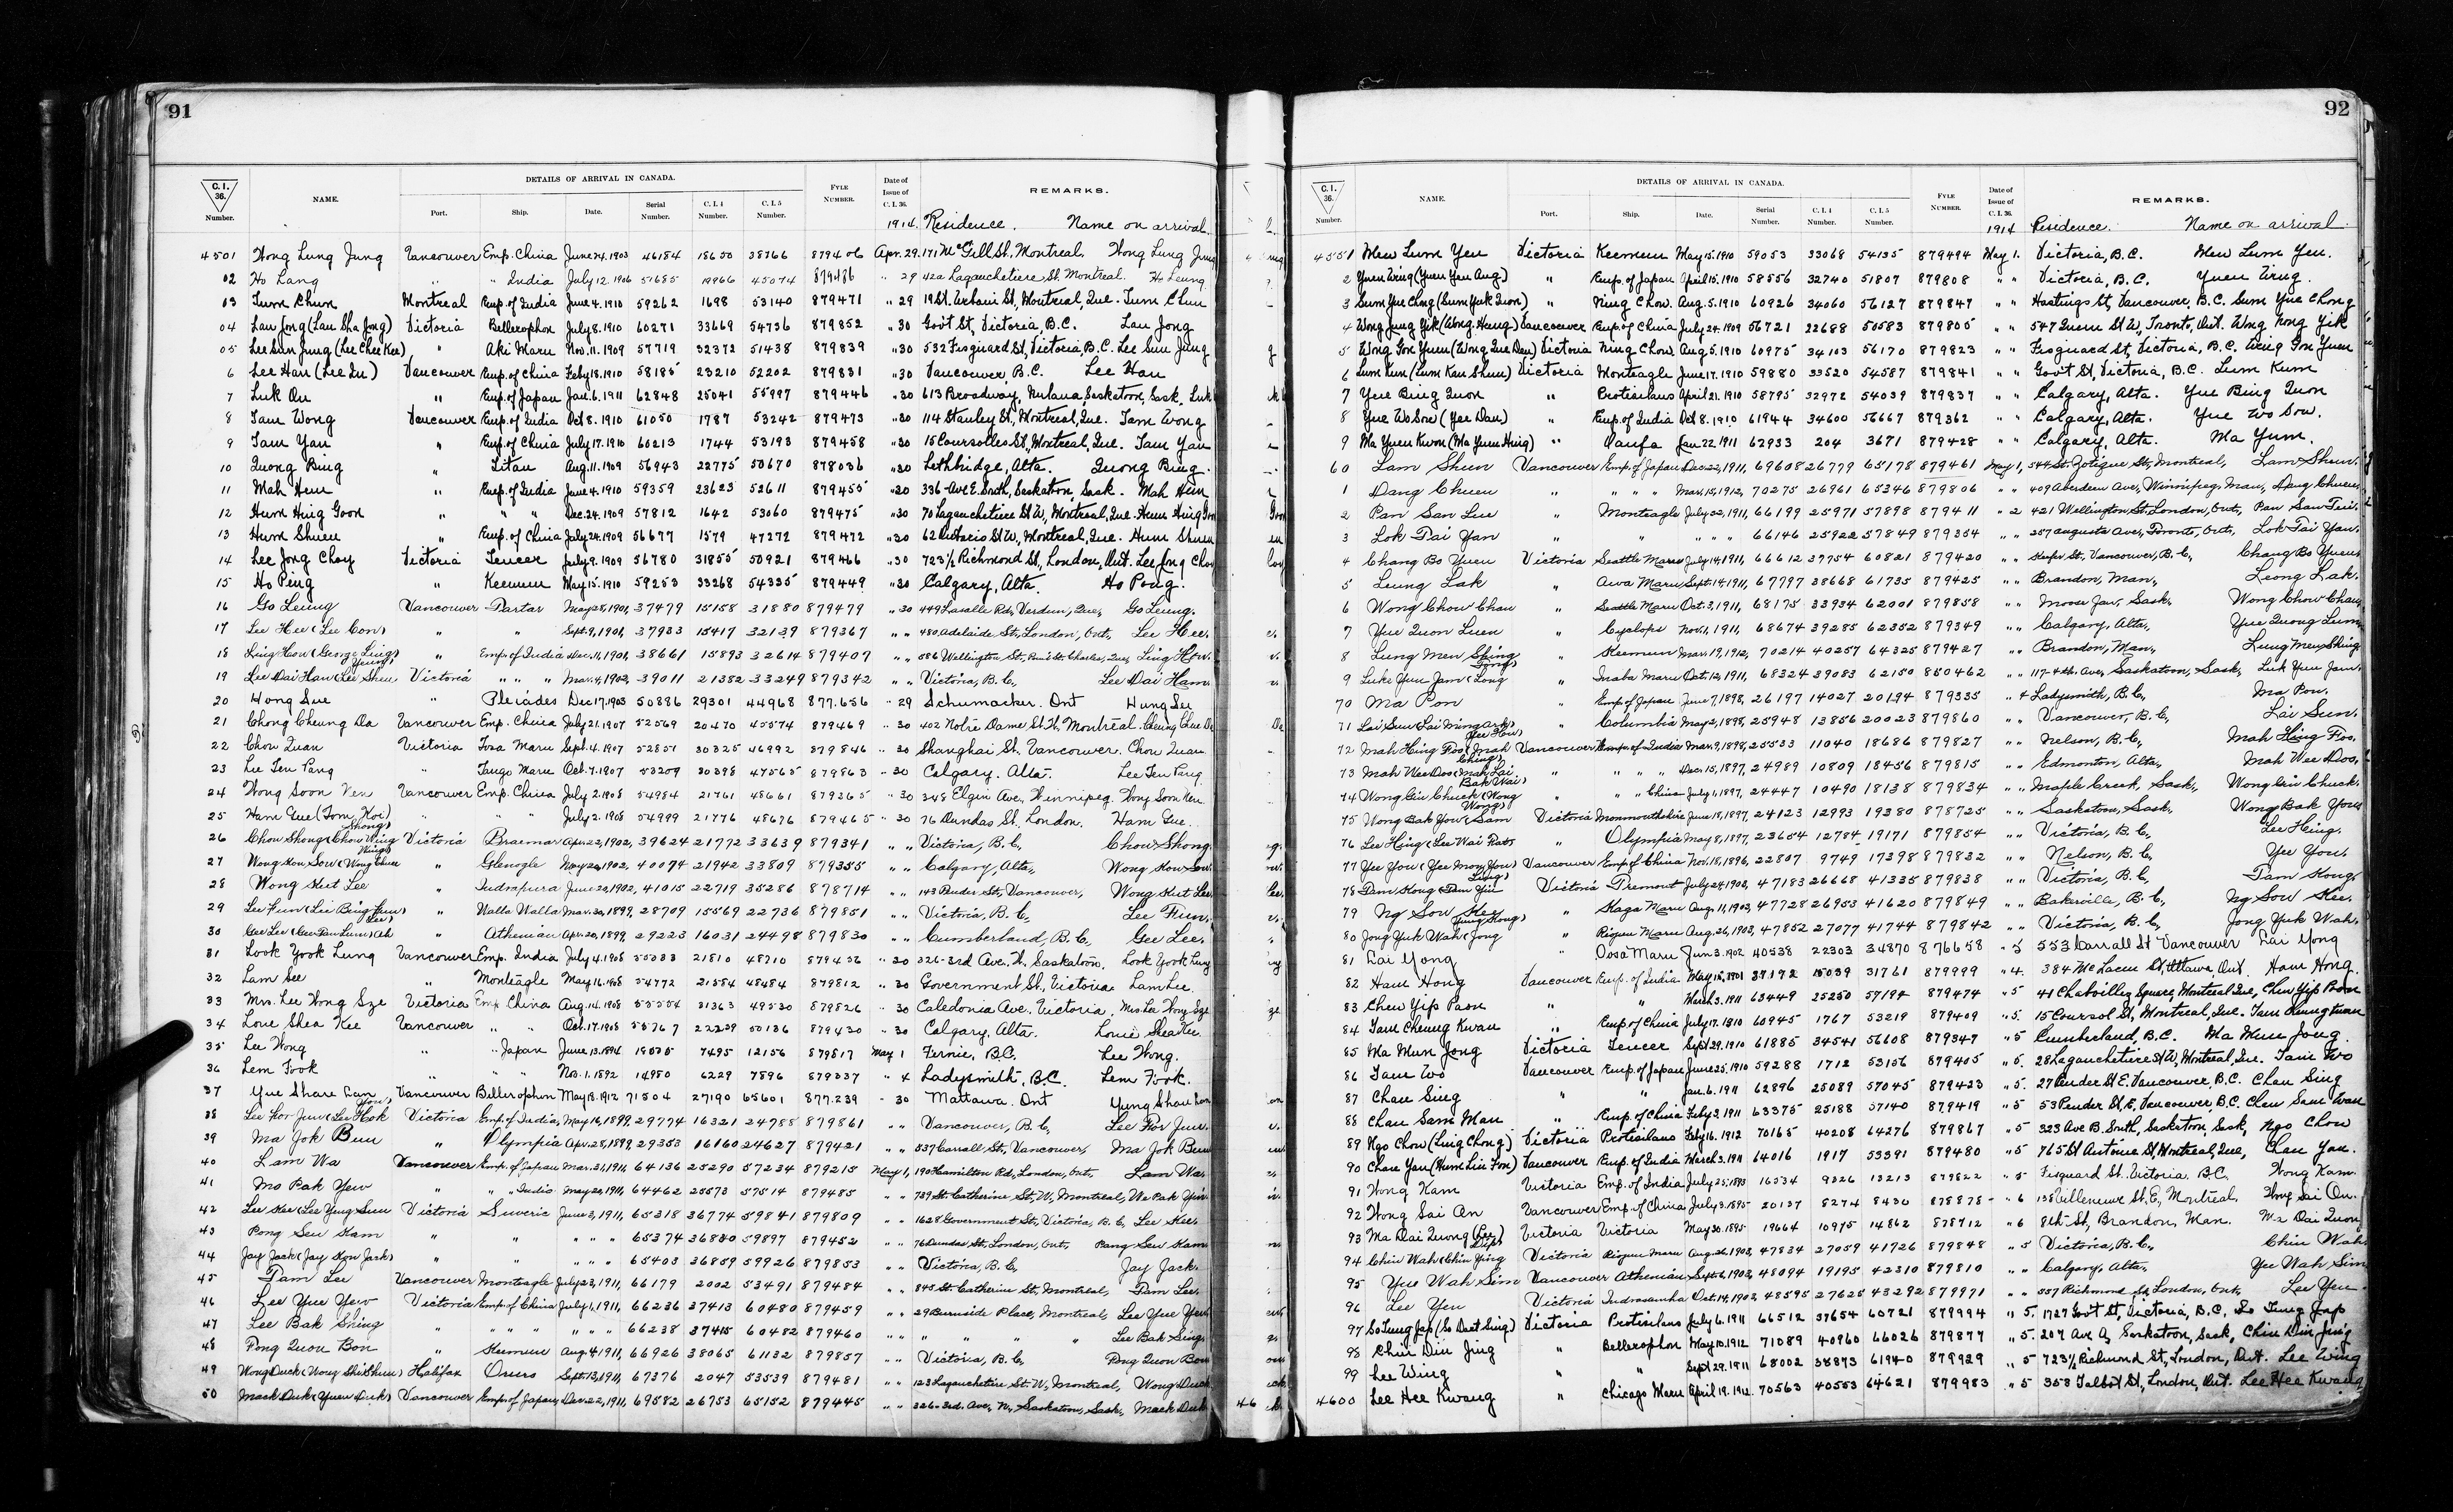 91
C. I. 36. Number. NAME. DETAILS OF ARRIVAL IN CANADA. Port. Ship. Date. Serial Number. C. I. 4 Number. C. I. 5 Number. FYLE NUMBER. Date of Issue of C. I. 36. REMARKS.
1914. Residence. Name on arrival.
4501 Wong Lung Jung Vancouver Emp. China June 24. 1903 46184 18650 38766 879406 Apr. 29. 171 McGill St, Montreal. Wong Lung Jung
02 Ho Lang " " India July 12. 1906 51685 19966 45074 " 29 42a Lagauchetiere St. Montreal. Ho Leung
03 Tum Chun Montreal Emp. of India June 4. 1910 59262 1698 53140 879471 " 29 19 St. Urbain St, Montreal, Que. Tum Chun
04 Lau Jong (Lau Sha Jong) Victoria Bellerophon July 8. 1910 60271 33669 54736 879852 " 30 Gov't St, Victoria, B.C. Lau Jong
05 Lee Sun Jung (Lee Chee Kee) " Aki Maru Nov. 11. 1909 57719 32372 51438 879839 " 30 532 Fisguard St, Victoria, B.C. Lee Sun Jung
6 Lee Han (Lee Su) Vancouver Emp. of China Feby 18. 1910 58185 23210 52202 879831 " 30 Vancouver, B.C. Lee Han
7 Luk On " Emp. of Japan Jan. 6. 1911 62848 25041 55997 879446 " 30 613 Broadway, Nutana, Saskatoon, Sask. Luk
8 Tam Wong Vancouver Emp. of India Oct 8. 1910 61050 1787 53242 879473 " 30 114 Stanley St., Montreal, Que. Tam Wong
9 Tam Yan " Emp. of China July 17. 1910 60213 1744 53193 879458 " 30 15 Coursolles St, Montreal, Que. Tam Yan
10 Quong Bing " Titan Aug. 11. 1909 56943 22775 50670 878036 " 30 Lethbridge, Alta. Quong Bing.
11 Mah Hem " Emp. of India June 4. 1910 59359 23623 52611 879455 " 30 336 - Ave E. South, Saskatoon, Sask. Mah Hem
12 Hum Hing Goon " " " Dec. 24. 1909 57812 1642 53060 879475 " 30 70 Lagauchetiere St W, Montreal, Que. Hum Hing Goon
13 Hum Shuen " Emp. of China July 24. 1909 56677 1579 47272 879472 " 30 62 Ontario St W, Montreal, Que. Hum Shuen
14 Lee Jong Choy Victoria Teucer July 9. 1909 56780 31855 50921 879466 " 30 723½ Richmond St, London, Ont. Lee Jng Choy
15 Ho Ping " Keemun May 15. 1910 59253 33268 54335 879449 " 30 Calgary, Alta. Ho Pong.
16 Go Leung Vancouver Tartar May 28, 1901, 37479 15158 31880 879479 " 30 449 Lasalle Rd, Verdun, Que, Go Leung.
17 Lee Hee (Lee Con) " " Sept. 9, 1901, 37933 15417 32139 879367 " " 480 Adelaide St, London, Ont, Lee Hee.
18 Ling How (George Ling) " Emp. of India Dec. 11, 1901, 38661 15893 32614 879407 " " 586 Wellington St, Point St. Charles, Que, Ling How.
19 Lee Dai Han (Lee Shew Yeung) Victoria " " " Mar. 4, 1902, 39011 21382 33249 879342 " " Victoria, B.C, Lee Dai Ham
20 Hong Sue " Pleiades Dec 17. 1903 50886 29301 44968 877.656 " 29 Schumacker. Ont Hung See
21 Chong Cheung Da Vancouver Emp. China July 21. 1907 52569 20470 45574 879469 " 30 402 Notre Dame St. W. Montreal. Cheung Chue Da
22 Chou Quan Victoria Tosa Maru Sept. 4. 1907 52851 30325 46992 879846 " 30 Shanghai St. Vancouver. Chou Quan
23 Lee Ten Pang " Tango Maru Oct. 7. 1907 53209 30398 47565 879863 " 30 Calgary. Alta. Lee Ten Pang
24 Wong Soon Ven Vancouver Emp. China July 2. 1908 54984 21761 48661 879365 " 30 348 Elgin Ave, Winnipeg. Wong Soon Ven
25 Ham Gue (Tom Koi) " " July 2. 1908 54999 21776 48676 879465 " 30 76 Dundas St. London. Ham Gue.
26 Chow Shong (Chow Wing Shong) Victoria Braemar Apr. 22, 1902, 39624 21772 33639 879341 " " Victoria, B.C, Chow Shong
27 Wong Kow Sow (Wong Chue Wing) " Glenogle May 20, 1902, 40074 21942 33809 879355 " " Calgary, Alta, Wong Kow Sow
28 Wong Keet Lee " Indrapura June 20, 1902, 41015 22719 35286 878714 " " 143 Pender St, Vancouver, Wong Keet Lee
29 Lee Fun (Lee Bing Fun) " Walla Walla Mar. 30, 1899, 28709 15569 22736 879851 " " Victoria, B.C, Lee Fun.
30 Gee Lee (Gee Pow Lum) Ah Lee) " Athenian Apr. 20, 1899, 29223 16031 24498 879830 " " Cumberland, B.C, Gee Lee.
31 Look Yook Lung Vancouver Emp. India July 4. 1908 55033 21810 48710 879436 " 30 326-3rd Ave. N. Saskatoon. Look Yook Lung
32 Lam See " Monteagle May 16. 1908 54772 21584 48484 879812 " 30 Government St, Victoria Lam Lee
33 Mrs. Lee Wong Sze Victoria Emp. China Aug. 14. 1908 55554 31363 49530 879826 " 30 Caledonia Ave. Victoria. Mrs. Lee Wong Sze
34 Loue Shea Kee Vancouver " " Oct. 17. 1908 55767 22239 50136 879430 " 30 Calgary. Alta. Louie Shea Kee
35 Lee Wong " " Japan June 13. 1894 19035 7495 12156 879817 May 1 Fernie, B.C. Lee Wong.
36 Lem Fook " " " Nov. 1. 1892 14950 6229 7896 879337 " 4 Ladysmith, B.C. Lem Fook.
37 Yue Share Lan Vancouver Bellerophon May 18. 1912 71504 27190 65601 877.239 " 30 Mattawa. Ont Yung Shau Lan
38 Lee Kor Jun (Lee Hook Yow) Victoria Emp. of India, May 16, 1899, 29774 16321 24788 879861 " " Vancouver, B.C, Lee Kor Jun.
39 Ma Jok Bun " Olympia Apr. 28, 1899, 29353 16160 24627 879421 " " 537 Carrall St, Vancouver, Ma Jok Bun
40 Lam Wa Vancouver Emp. of Japan Mar. 31, 1911, 64136 25290 57234 879215 May 1, 190 Hamilton Rd, London, Ont, Lam Wa.
41 Mo Pak Yew " " " India May 20, 1911, 64462 25573 57514 879485 " " 739 St. Catherine St. W, Montreal, Wo Pak Yin
42 Lee Kee (Lee Yeng Sun Victoria Suveric June 3, 1911, 65318 36774 59841 879809 " " 1628 Government St, Victoria, B.C, Lee Kee.
43 Pong Seu Kam " " " " " 65374 36830 59897 879452 " " 76 Dundas St, London, Ont, Pang Seu Kam
44 Jay Jack (Jay Kow Jack) " " " " " 65403 36859 59926 879853 " " Victoria, B.C, Jay Jack.
45 Tam Lee Vancouver Monteagle July 23, 1911, 66179 2002 53491 879484 " " 845 St. Catherine St, Montreal, Tam Lee.
46 Lee Yue Yew Victoria Emp. of China July 1, 1911, 66236 37413 60480 879459 " " 29 Burnside Place, Montreal, Lee Yue Yew
47 Lee Bak Shing " " " " " " " 66238 37415 60482 879460 " " " " " " Lee Bak Sing
48 Pong Quon Bon " Keemun Aug. 4, 1911, 66926 38065 61132 879857 " " Victoria, B.C, Pong Quon Bon
49 Wong Duck (Wong Shu Shun) Halifax Orura Sept. 13, 1911, 67376 2047 53539 879481 " " 123 Lagauchetiere St. W, Montreal, Wong Duck
50 Mack Duk (Yuen Duk) Vancouver Emp. of Japan, Dec. 22, 1911, 69582 26753 65152 879445 " " 326-3rd. Ave, N, Saskatoon, Sask, Mack Duk
92
C. I. 36. Number. NAME. DETAILS OF ARRIVAL IN CANADA. Port. Ship. Date. Serial Number. C. I. 4 Number. C. I. 5 Number. FYLE NUMBER. Date of Issue of C. I. 36. REMARKS.
1914 Residence. Name on arrival.
4551 Mew Lum Yen Victoria Keemun May 15. 1910 59053 33068 54135 879494 May 1. Victoria, B.C. Mew Lum Yen.
2 Yuen Wing (Yuen Yau Aug) " Emp. of Japan April 15. 1910 58556 32740 51807 879808 " " Victoria, B.C. Yuen Wing.
3 Sum Yue Chng (Sum Yuk Quon) " Ning Chow. Aug. 5. 1910 60926 34060 56127 879847 " " Hastings St, Vancouver, B.C. Sum Yue Chong
4 Wong Jung Yik (Wong Heng) Vancouver Emp. of China July 24. 1909 56721 22688 50583 879805 " " 547 Queen St W., Toronto, Ont. Wong Nong Yik
5 Wong Gon Yuen (Wong Que Den) Victoria Ning Chow Aug 5. 1910 60975 34103 56170 879823 " " Fisguard St, Victoria, B.C. Wong Gon Yuen
6 Lum Kun (Lum Kan Shum) Victoria Monteagle June 17. 1910 59880 33520 54587 879841 " " Gov't St, Victoria, B.C. Lum Kum
7 Yue Bing Quon " Protisilaus April 21. 1910 58795 32972 54039 879837 " " Calgary, Alta. Yue Bing Quon
8 Yue Wo Soe (Yee Dan) " Emp. of India Oct 8. 1910 61944 34600 56667 879362 " " Calgary, Alta. Yue Wo Sow.
9 Ma Yuen Kwon (Ma Yum Hing) " Oanfa Jan. 22, 1911 62933 204 3671 879428 " " Calgary, Alta. Ma Yum.
60 Lam Shun Vancouver Emp. of Japan Dec. 22, 1911, 69608 26779 65178 879461 May 1, 544 St. Zotique St, Montreal, Lam Shun.
1 Dang Chuen " " " " Mar. 15, 1912, 70275 26961 65346 879806 " " 409 Aberdeen Ave, Winnipeg, Man, Dang Chuen
2 Pan San Lue " Monteagle July 22, 1911, 66199 25971 57898 879411 " 2 421 Wellington St, London, Ont, Pan San Tui.
3 Lok Tai Yan " " " " " 66146 25922 57849 879354 " " 257 Augusta Ave, Toronto, Ont, Lok Tai Yan.
4 Chang Bo Yuen Victoria Seattle Maru July 14, 1911, 66612 37754 60821 879420 " " Keefer St. Vancouver, B.C, Chang Bo Yuen
5 Leung Lak " Awa Maru Sept. 14, 1911, 67797 38668 61735 879425 " " Brandon, Man, Leong Lak.
6 Wong Chow Chau " Seattle Maru Oct. 3, 1911, 68175 33934 62001 879858 " " Moose Jaw, Sask, Wong Chow Chau
7 Yue Quon Luen " Cyclops Nov. 1, 1911, 68674 39285 62352 879349 " " Calgary, Alta, Yue Quong Lum
8 Lung Men Shing " Keemun Mar. 19, 1912, 70214 40257 64325 879427 " " Brandon, Man, Lung Men Shing
9 Luke Yun Jam (Long Tong) " Inaba Maru Oct. 12, 1911, 68324 39083 62150 850462 " " 117-4th. Ave, Saskatoon, Sask, Luk Yun Jam
70 Ma Pon " Emp of Japan June 7, 1898, 26197 14027 20194 879335 " 4 Ladysmith, B.C, Ma Pon.
71 Lai Sun (Lai Ming Ark) " Columbia May 2, 1898, 25948 13856 20023 879860 " " Vancouver, B.C, Lai Sun.
72 Mah Hing Foo (Mah Yee How) Vancouver Emp. of India Mar. 9, 1898, 25533 11040 18686 879827 " " Nelson, B.C, Mah Hing Foo.
73 Mah Wee Doo (Mah Lai Ching) " " " " Dec. 15, 1897, 24989 10809 18456 879815 " " Edmonton, Alta, Mah Wee Doo,
74 Wong Gin Chuck (Wong Bak Wai) " " " China July 1, 1897, 24447 10490 18138 879834 " " Maple Creek, Sask, Wong Gin Chuck.
75 Wong Bak Yow (Sam Wong) Victoria Monmouthshire June 18, 1897, 24123 12993 19380 878725 " " Saskatoon, Sask, Wong Bak Yow
76 Lee Hing (Lee Wai Rat) Olympia May 8, 1897, 23654 12784 19171 879854 " " Victoria, B.C, Lee Hing.
77 Yee You (Yee Mon You) Vancouver Emp. of China Nov. 18, 1896, 22807 9749 17398 879832 " " Nelson, B.C, Yee You.
78 Tam Kong (Tam Yiu Ling) Victoria Tremont July 24, 1903, 47183 26668 41335 879838 " " Victoria, B.C, Tam Kong.
79 Ng Sow Kee " Kaga Maru Aug. 11, 1903, 47728 26953 41620 879849 " " Bakerville, B.C, Ng Sow Kee.
80 Jong Yuk Wah (Jong Jung Kong) " Riojun Maru Aug. 26, 1903, 47852 27077 41744 879842 " " Victoria, B.C, Jong Yuk Wah.
81 Lai Yong " Tosa Maru Jun 3. 1902 40538 22303 34870 876658 " 5 553 Carrall St Vancouver Lai Yong
82 Ham Hong Vancouver Emp. of India May 15, 1901 37172 15039 31761 879999 " 4. 384 McLaren St, Ottawa, Ont. Ham Hong.
83 Chew Yip Poon " " March 3. 1911 63449 25250 57194 879474 " 5 41 Chaboillez Square, Montreal Que, Chew Yip Poon
84 Tam Cheung Kwan " Emp of China July 17. 1910 60945 1767 53219 879409 " 5. 15 Coursol St, Montreal, Que. Tam Keung Kwan
85 Ma Mun Jong Victoria Teucer Sept 29. 1910 61885 34541 56608 879347 " 5 Cumberland, B.C. Ma Mun Jong.
86 Tam Wo Vancouver Emp. of Japan June 25. 1910 59288 1712 53156 879405 " 5. 28 Lagauchetiere St W, Montreal, Que. Tam Wo
87 Chan Sing " " Jan. 6. 1911 62896 25089 57045 879423 " 5. 27 Pender St E. Vancouver, B.C. Chan Sing
88 Chan Sam Man " Emp. of China Feby 2. 1911 63375 25188 57140 879419 " 5 53 Pender St. E, Vancouver, B.C. Chan Sam Wan
89 Ngo Chow (Ling Chong) Victoria Protisilaus Feby 16. 1912 70165 40208 64276 879867 " 5 323 Ave B. South, Saskatoon, Sask, Ngo Chow
90 Chan Yan (Hum Lin Fon) Vancouver Emp. of India March 3. 1911 64016 1917 53391 879480 " 5 765 St Antoine St, Montreal, Que, Chan Yan.
91 Wong Kam Victoria Emp. of India July 25. 1893 16534 9326 13213 879822 " 5 Fisguard St. Victoria. B.C. Wong Kam
92 Wong Sai An Vancouver Emp. of China July 3. 1895 20137 8274 8430 878878 " 6 138 Villeneuve St. E, Montreal. Wong Sai On.
93 Ma Dai Quong (Lee) Victoria Victoria May 30. 1895 19664 10975 14862 878712 " 6 8th St, Brandon, Man. Ma Dai Quong
94 Chin Wah (Chin Ying Dip) Victoria Riojun Maru Aug. 26, 1903, 47834 27059 41726 879848 " 5 Victoria, B.C, Chin Wah
95 Yue Wah Sim Vancouver Athenian Sept. 6, 1903, 48094 19195 42310 879810 " " Calgary, Alta, Yee Wah Sim
96 Lee Yen Victoria Indrasamha Oct. 14, 1903, 48595 27625 43292 879971 " " 557 Richmond St, London, Ont, Lee Yen
97 So Tung Jap (So Duet Sing) Victoria Protisilaus July 6. 1911 66512 37654 60721 879994 " 5. 1727 Gov't St, Victoria, B.C. So Tung Jap
98 Chin Din Jing " Bellerophon May 10. 1912 71089 40960 66026 879877 " 5. 207 Ave A, Saskatoon, Sask, Chin Din Jing
99 Lee Wing " " Sept 29. 1911 68002 38873 61940 879929 " 5 723½ Richmond St, London, Ont. Lee Wing
4600 Lee Hee Kwang " Chicago Maru April 19. 1912 70563 40553 64621 879983 " 5 358 Talbot St, London, Ont. Lee Hee Kwang